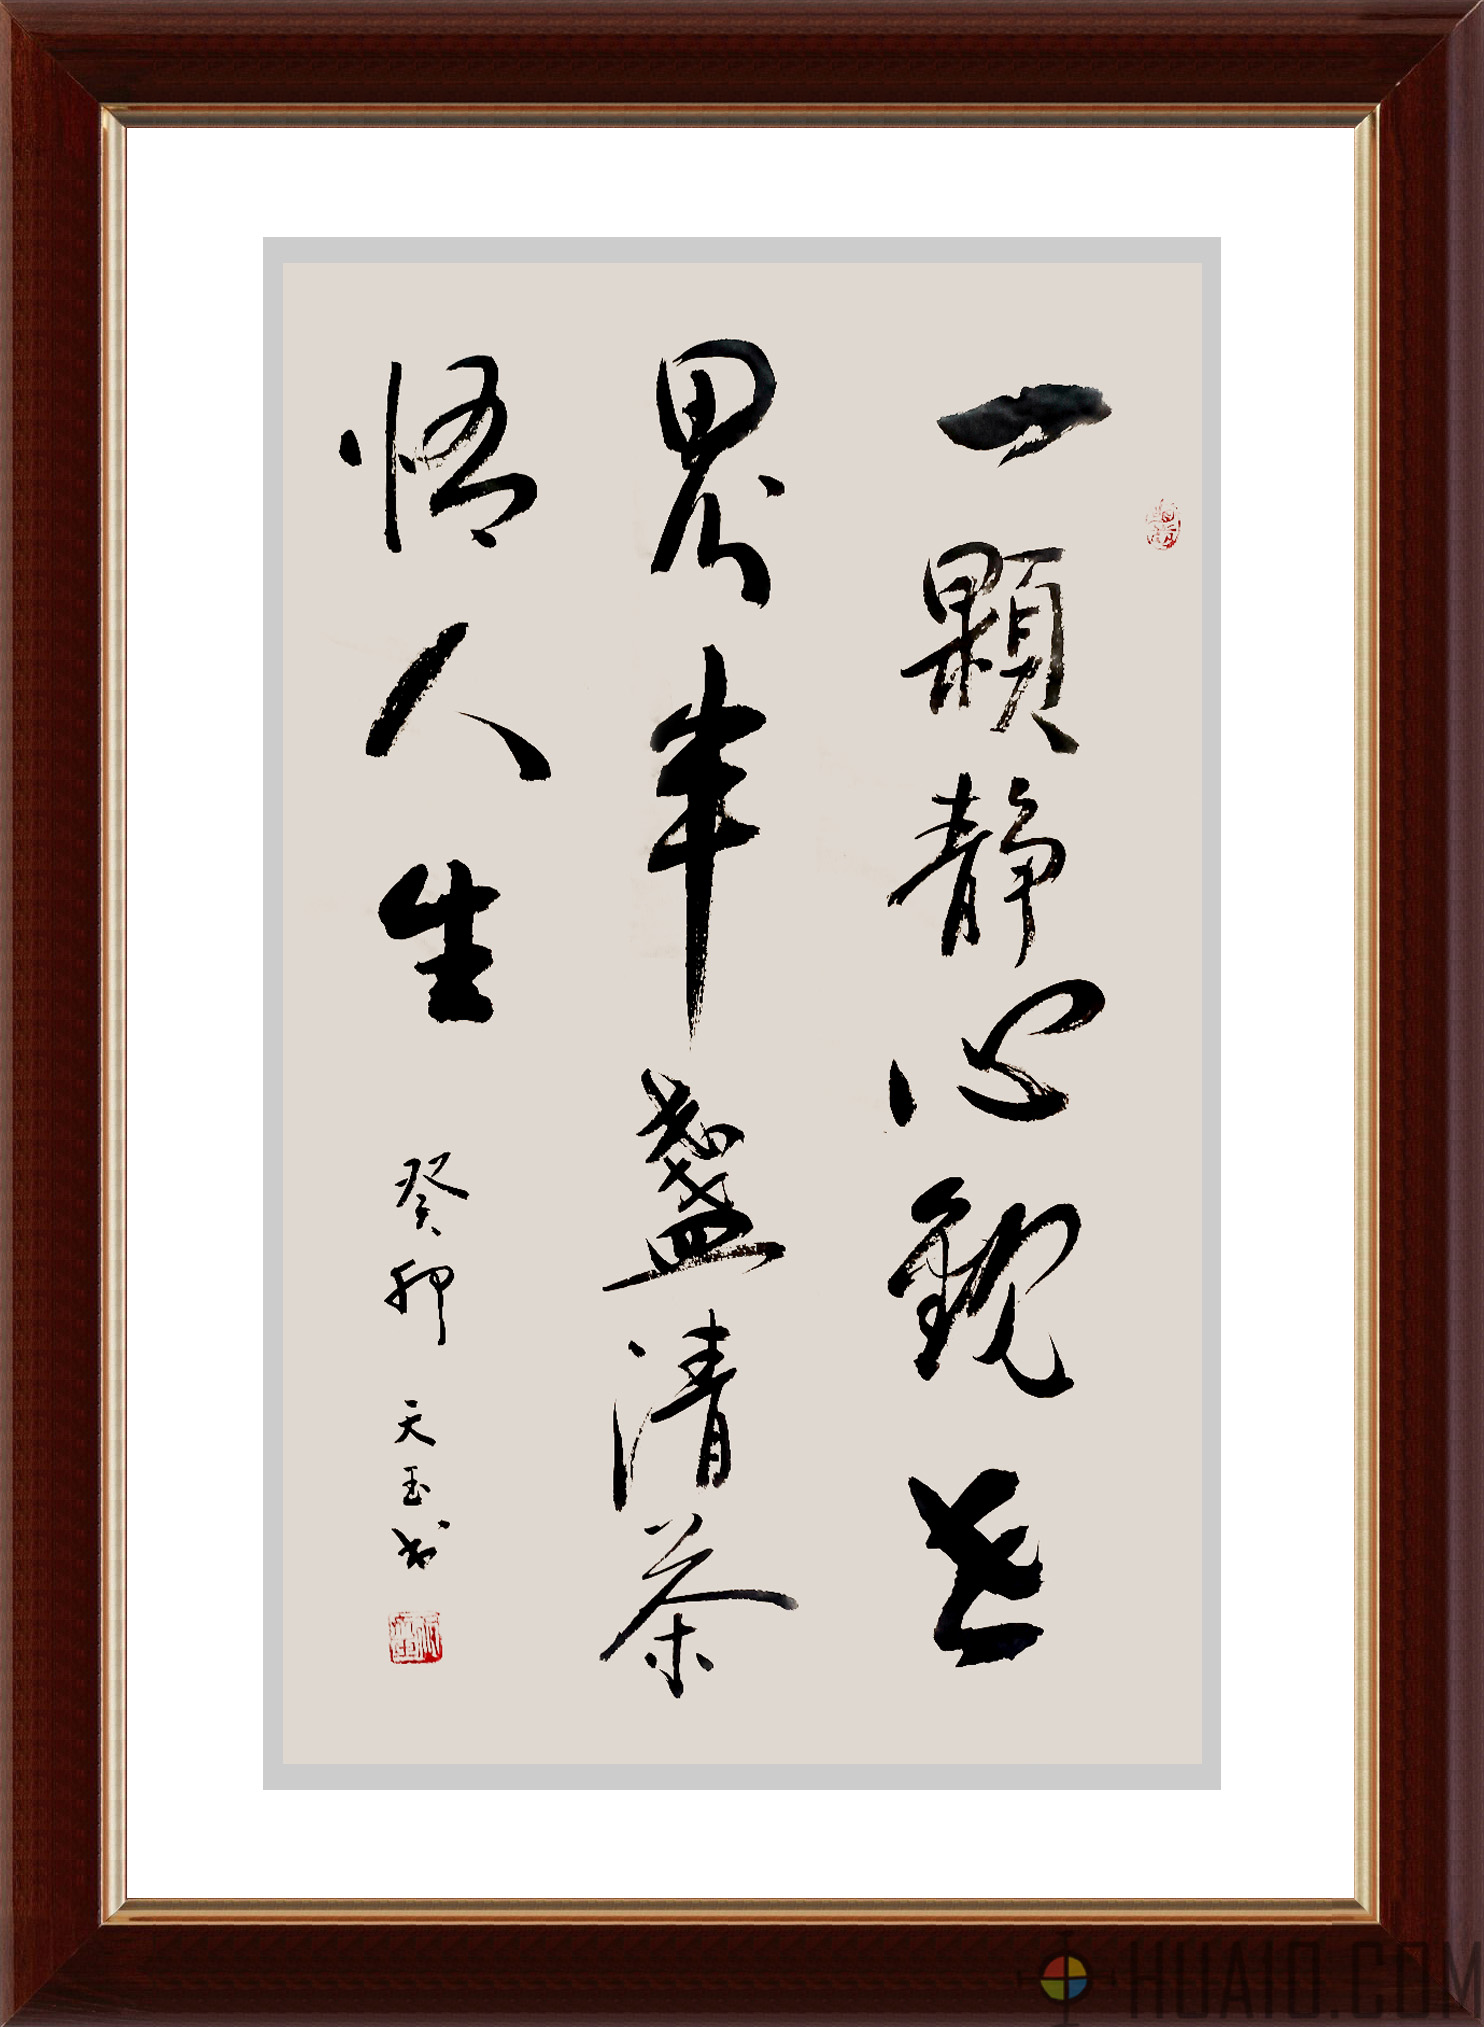 一顆静心觀世
界半盞清茶
悟人生
癸卯 天玉书
HUA10.COM